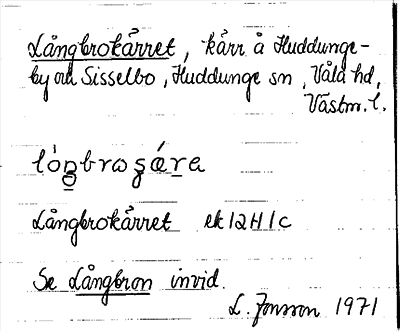 Långbrokärret, kärr å Huddunge-
by och Sisselbo, Huddunge sn, Våla hd,
Västm. l.
Långbrokärret ek 12H1c
Se Långbron invid.
L. Jonsson 1971